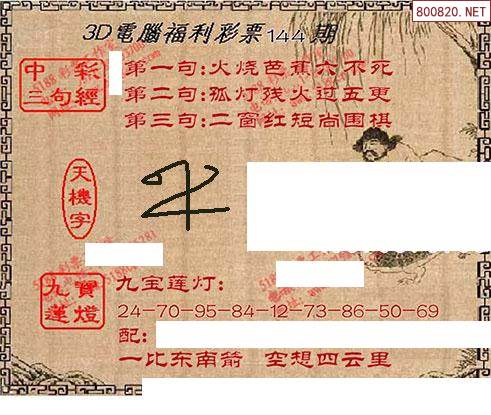 800820.NET
3D電腦福利彩票144期
中彩
三句經
第一句:火烧芭蕉六不死
第二句:孤灯残火过五更
第三句:二窗红短尚围棋
天機字
九寶
蓮燈
九宝莲灯:
24-70-95-84-12-73-86-50-69
配:
一比东南箭 空想四云里